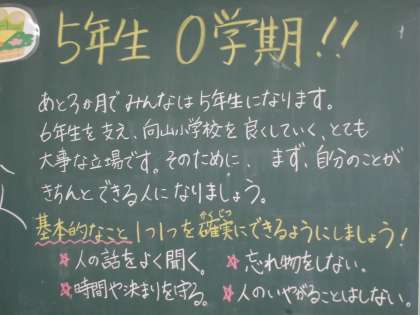 5年生 0学期!!
あと3か月でみんなは5年生になります。
6年生を支え、向山小学校を良くしていく、とても
大事な立場です。そのために、まず、自分のことが
きちんとできる人になりましょう。
基本的なこと1つ1つを確実にできるようにしましょう!
かくじつ
★人の話をよく聞く。 ★忘れ物をしない。
★時間や決まりを守る。 ★人のいやがることはしない。